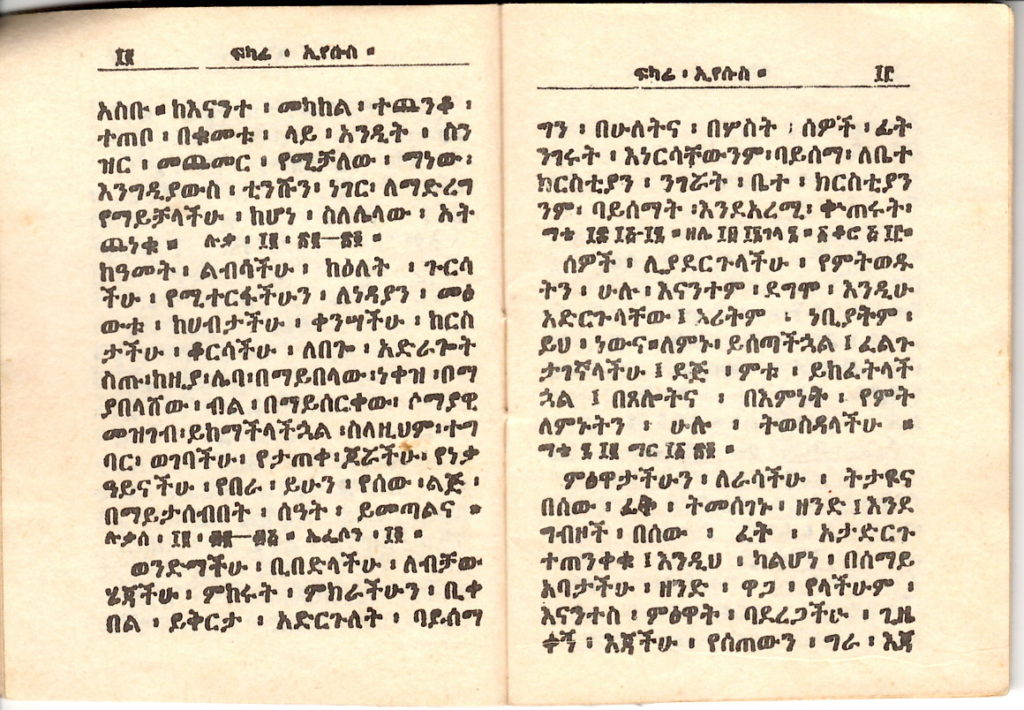 ፲፪ ፍካሬ ፡ ኢየሱስ ።
አስቡ ። ከእናንተ ፡ መካከል ፡ ተጨንቆ ፡
ተጠቦ ፡ በቁመቱ ፡ ላይ ፡ አንዲት ፡ ስን
ዝር ፡ መጨመር ፡ የሚቻለው ፡ ማነው፡
እንግዲያውስ ፡ ቲንሹን፡ ነገር፡ ለማድረግ
የማይቻላችሁ ፡ ከሆነ ፡ ስለሌላው ፡ አት
ጨነቁ ። ሉቃ ፡ ፲፪ ፡
ከዓመት ፡ ልብሳችሁ ፡ ከዕለት ፡ ጉርሳ
ችሁ ፡ የሚተርፋችሁን ፡ ለነዳያን ፡ መፅ
ውቱ ፡ ከሀብታችሁ ፡ ቀንሣችሁ ፡ ከርስ
ታችሁ ፡ ቆርሳችሁ ፡ ለበጎ ፡ አድራጎት
ስጡ፡ከዚያ፡ሌባ፡በማይበላው፡ነቀዝ ፡በማ
ያበላሸው ፡ ብል ፡ በማይሰርቀው፡ ሶማያዊ
መዝገብ፡ይከማችላችኋል ፡ስለዚህም፡ተግ
ባር፡ ወገባችሁ፡ የታጠቀ፡ጆሯችሁ፡ የነቃ
ዓይናችሁ ፡ የበራ ፡ ይሁን ፡ የሰው ፡ልጅ ፡
በማይታሰብበት ፡ ሰዓት ፡ ይመጣልና ።
ሉቃስ ፡ ፲፪ ፡ ኤፌሶን ፡
ወንድማችሁ ፡ ቢበድላችሁ ፡ ለብቻው
ሄዳችሁ ፡ ምከሩት ፡ ምክራችሁን ፡ ቢቀ
በል ፡ ይቅርታ ፡ አድርጉለት ፡ ባይሰማ
ፍካሬ ፡ ኢየሱስ ።
ግን ፡ በሁለትና ፡ በሦስት ፡ ሰዎች ፡ ፊት
ንገሩት ፡ እነርሳቸውንም፡ባይሰማ፡ ለቤተ
ክርስቲያን ፡ ንገሯት ፡ ቤተ ፡ ክርስቲያን
ንም፡ ባይሰማት ፡እንደአረሚ፡ ቍጠሩት፡
ማቴ
ሰዎች ፡ ሊያደርጉላችሁ ፡ የምትወዱ
ትን ፡ ሁሉ ፡ እናንተም ፡ ደግሞ ፡ እንዲሁ
አድርጉላቸው ፤ ኦሪትም ፡ ነቢያትም ፡
ይህ ፡ ነውና።ለምኑ፡ ይሰጣችኋል ፤ ፈልጉ
ታገኛላችሁ ፤ ደጅ ፡ ምቱ ፡ ይከፈትላች
ኋል ፤ በጸሎትና ፡ በእምነት ፡ የምት
ለምኑትን ፡ ሁሉ ፡ ትወስዳላችሁ ።
ማቴ ፯ ፲፪ ማር
ምፅዋታችሁን ፡ ለራሳችሁ ፡ ትታዩና
በሰው ፡ ፊት ፡ ትመሰገኑ ፡ ዘንድ ፤ እንደ
ግብዞች ፡ በሰው ፡ ፊት ፡ አታድርጉ
ተጠንቀቁ ፤ እንዲህ ፡ ካልሆነ ፡ በሰማይ
አባታችሁ ፡ ዘንድ ፡ ዋጋ ፡ የላችሁም ፡
እናንተስ ፡ ምፅዋት ፡ ባደረጋችሁ ፡ ጊዜ
ቀኝ ፡ እጃችሁ ፡ የሰጠውን ፡ ግራ ፡ እጃ